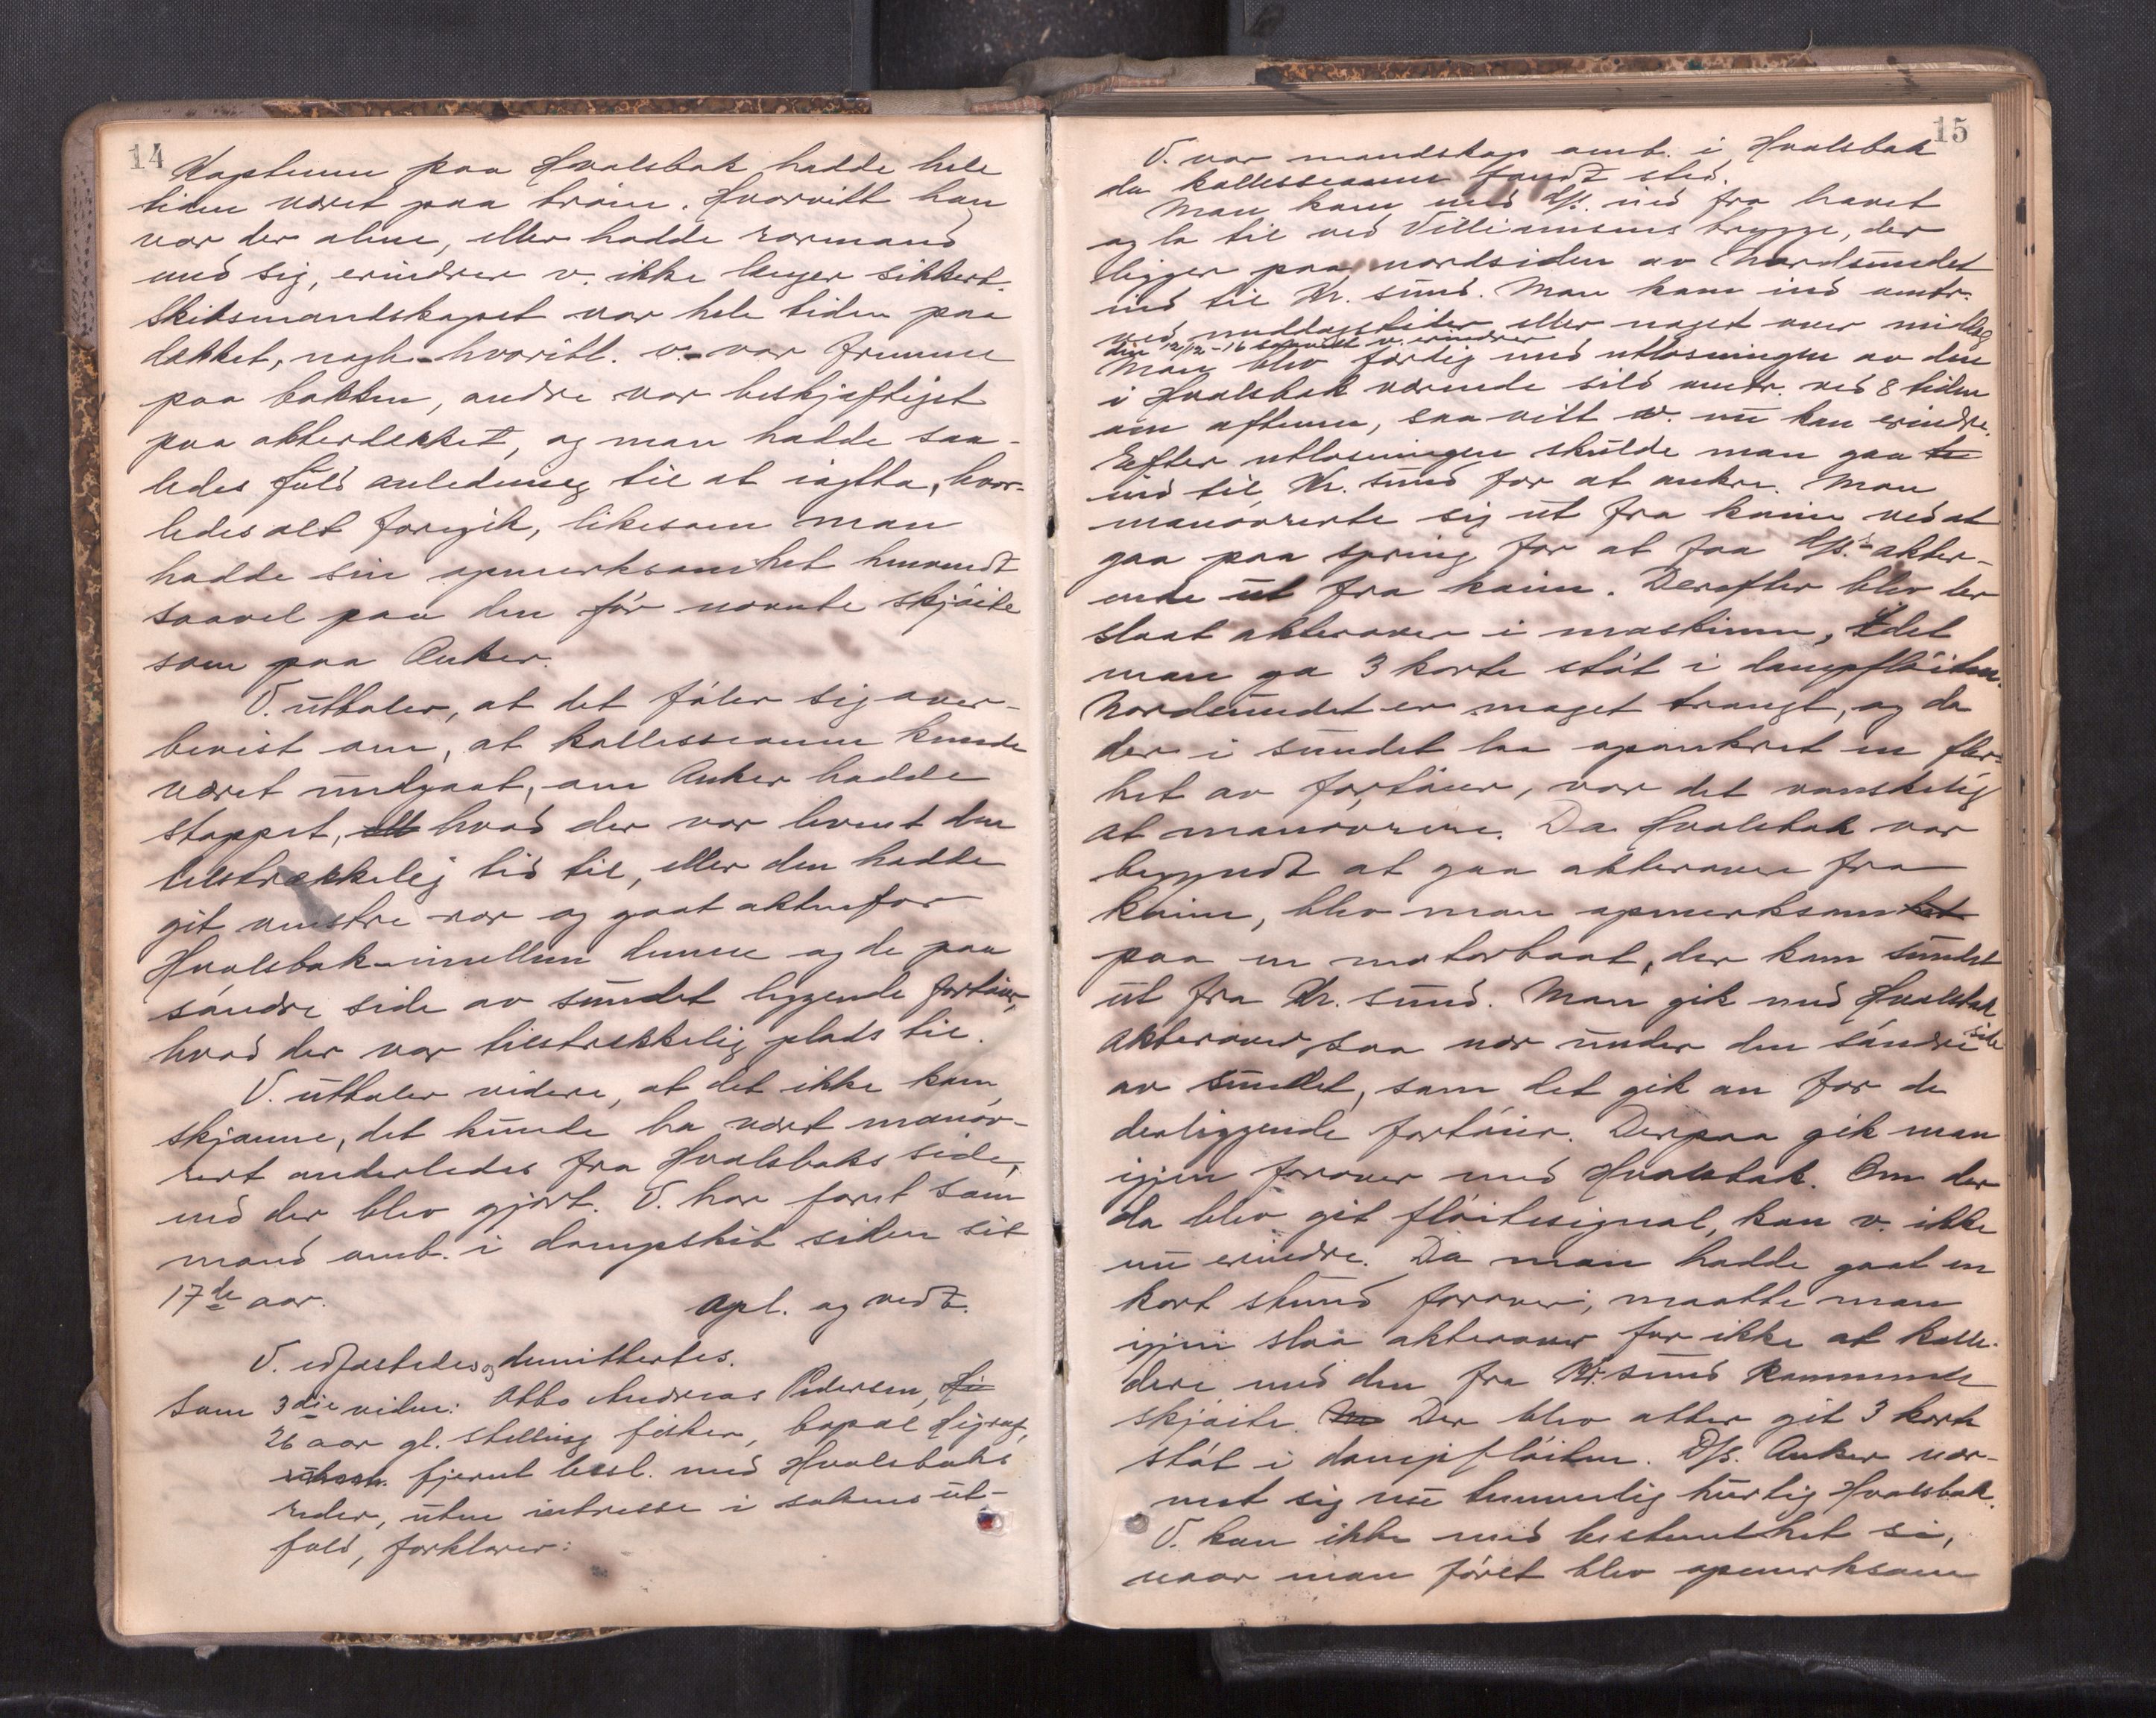 14
Kapteinen paa Hvalsbak hadde hele
tiden været paa broen. Hvorvitt han
var der alene, eller hadde rormand
med sig, erindrer v. ikke længer sikkert.
Skibsmandskapet var hele tiden paa
dækket, nogle – hvoribl. v. – var fremme
paa bakken, andre var beskjæftiget
paa akterdækket, og man hadde saa-
ledes fuld anledning til at iagtta, hvor-
ledes alt foregik, likesom man
hadde sin opmerksomhet henvendt
saavel paa den før nævnte skjøite
som paa Anker.
V. uttaler, at det føler sig over-
bevist om, at kollisionen kunde
været undgaat, om Anker hadde
stoppet, hvad der var levnet den
tilstrækkelig tid til, eller den hadde
git venstre ror og gaat aktenfor
Hvalsbak – imellem denne og de paa
søndre side av sundet liggende fortøier,
hvad der var tilstrækkelig plads til.
V. uttaler videre, at det ikke kan
skjønne, det kunde ha været manøv-
rert anderledes fra Hvalsbaks side,
end der blev gjort. V. har faret som
mand omb. i dampskib siden sit
17de aar.
Opl. og vedt.
V. edfæstedes og demittertes.
Som 3die vidne: Otto Andreas Pedersen,
26 aar gl. stilling fisker, bopæl
fjernt besl. med Hvalsbaks
reder, uten intresse i sakens ut-
fald, forklarer:
15
V. var mandskap omb. i Hvalsbak
da kollissionen fandt sted.
Man kom med D/s. ind fra havet
og la til ved Villiamsens brygge, der
ligger paa nordsiden av Nordsundet
ind til Kr. sund. Man kom ind omtr.
ved middagstider eller noget over middag
den 12/12-16 saavitt v. erindrer
Man blev færdig med utlosningen av den
i Hvalsbak værende sild omtr. ved 8 tiden
om aftenen, saa vitt v. nu kan erindre.
Efter utlosningen skulde man gaa
ind til Kr. sund for at ankre. Man
manøvrerte sig ut fra kaien ved at
gaa paa spring for at faa D/s.'s akter-
ende ut fra kaien. Derefter blev der
slaat akterover i maskinen, idet
man ga 3 korte støt i dampfløiten.
Nordsundet er meget trangt, og da
der i sundet laa opankret en fler-
het av fartøier, var det vanskelig
at manøvrere. Da Hvalsbak var
begyndt at gaa akterover fra
kaien, blev man opmerksom
paa en motorbaat, der kom sundet
ut fra Kr. sund. Man gik med Hvalsbak
akterover saa nær under den søndre side
av sundet, som det gik an for de
derliggende fartøier. Derpaa gik man
igjen forover med Hvalsbak. Om der
da blev git fløitesignal, kan v. ikke
nu erindre. Da man hadde gaat en
kort stund forover, maatte man
igjen slaa akterover for ikke at kolli-
dere med den fra Kr. sund kommende
skjøite. Der blev atter git 3 korte
støt i dampfløiten. D/s. Anker nær-
met sig nu temmelig hurtig Hvalsbak.
V. kan ikke med bestemthet si,
naar man først blev opmerksom